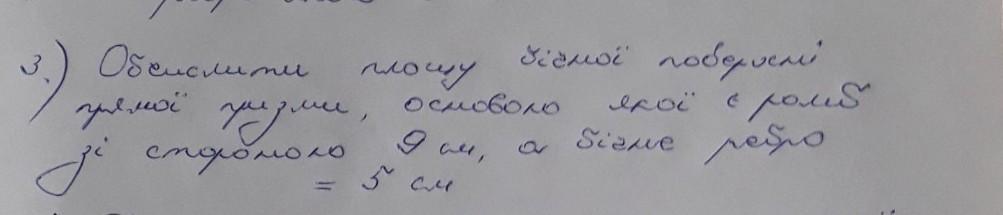 3.) Обчислити площу бічної поверхні
прямої призми, основою якої є ромб
зі стороною 9 см, а бічне ребро
= 5 см